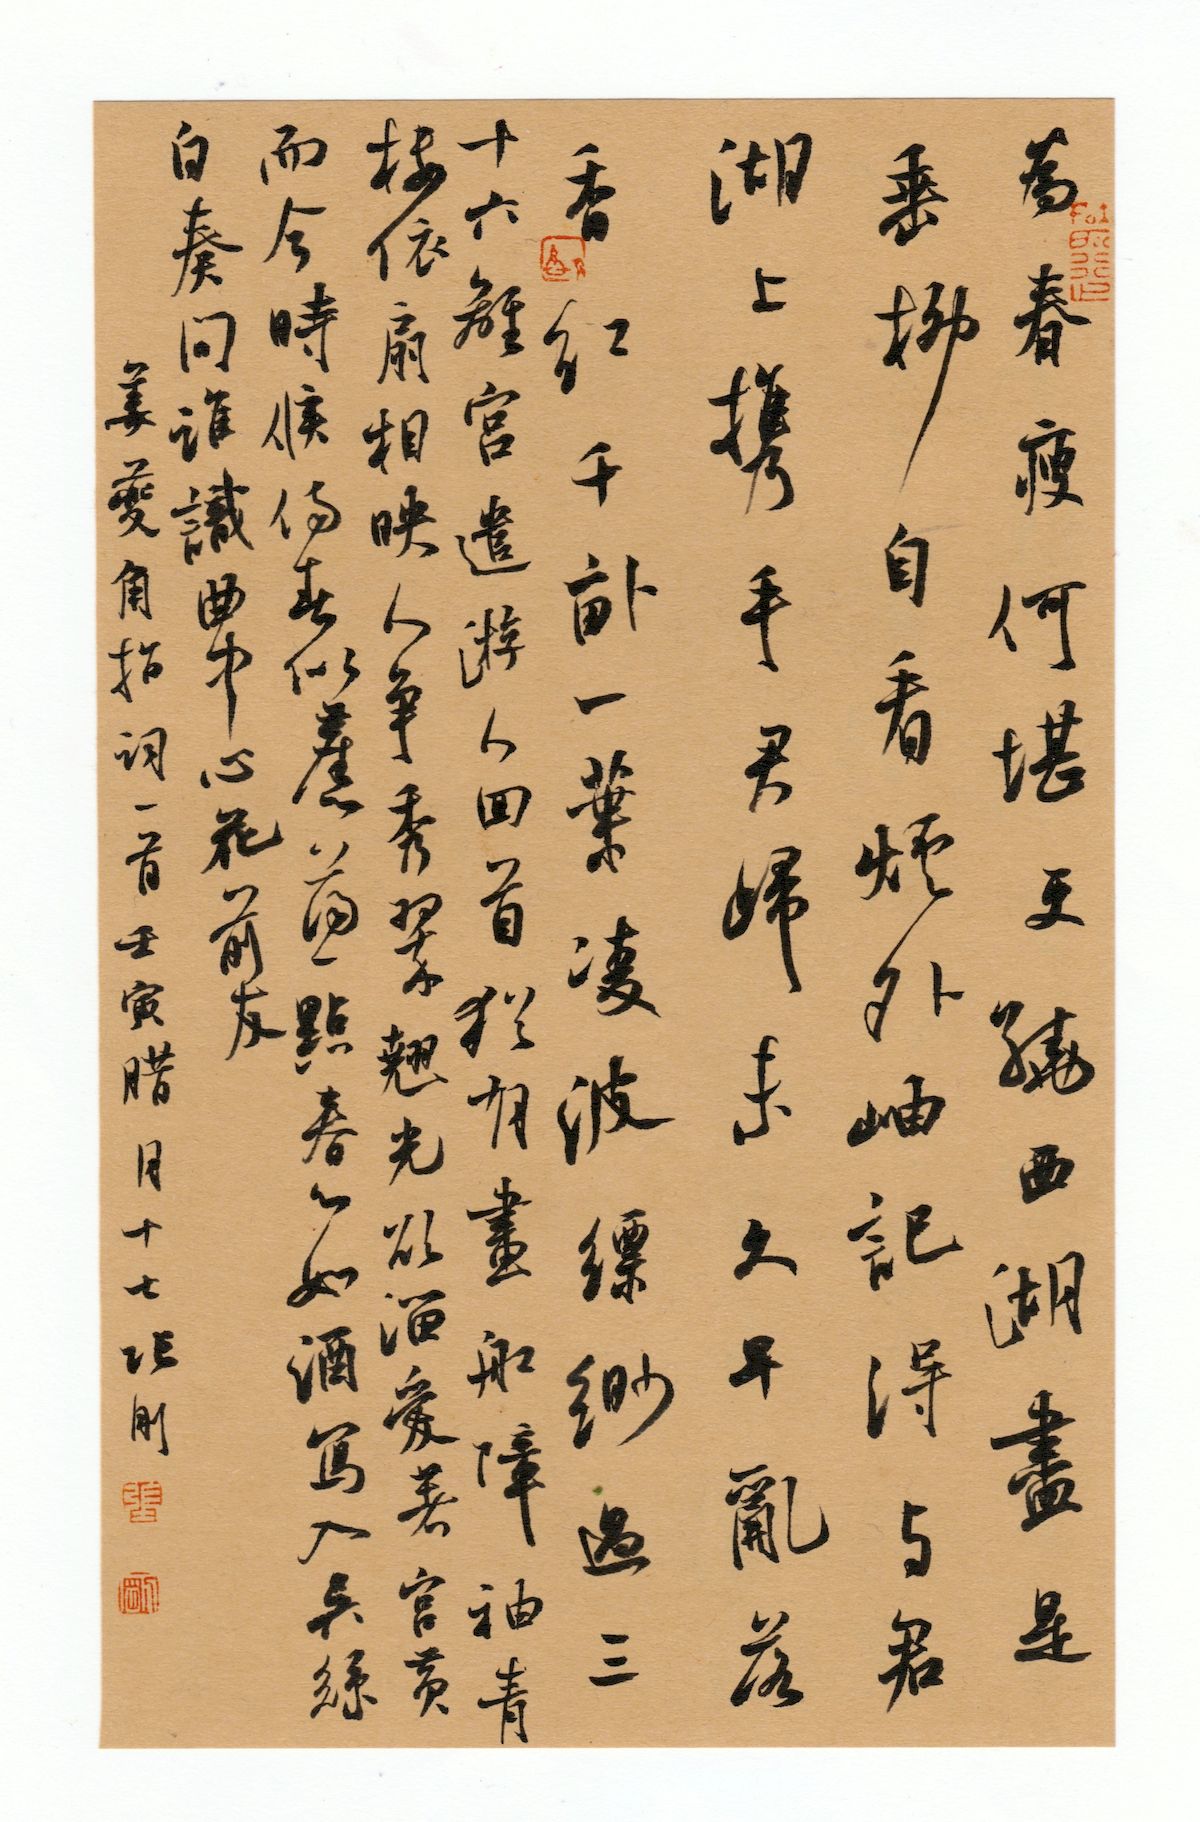 為春瘦何堪更繞西湖盡是
垂柳自看煙外岫記得与君
湖上攜手君歸未久早亂落
香紅千畝一葉凌波縹緲過三
十六離宮遣游人回首猶有畫船障袖青
樓依扇相映人爭秀翠翹光欲溜愛著宮黃
而今時候傷春似舊蕩一點春心如酒寫入吳絲
自奏問誰識曲中心花前友
姜夔角招詞一首壬寅腊月十七張剛